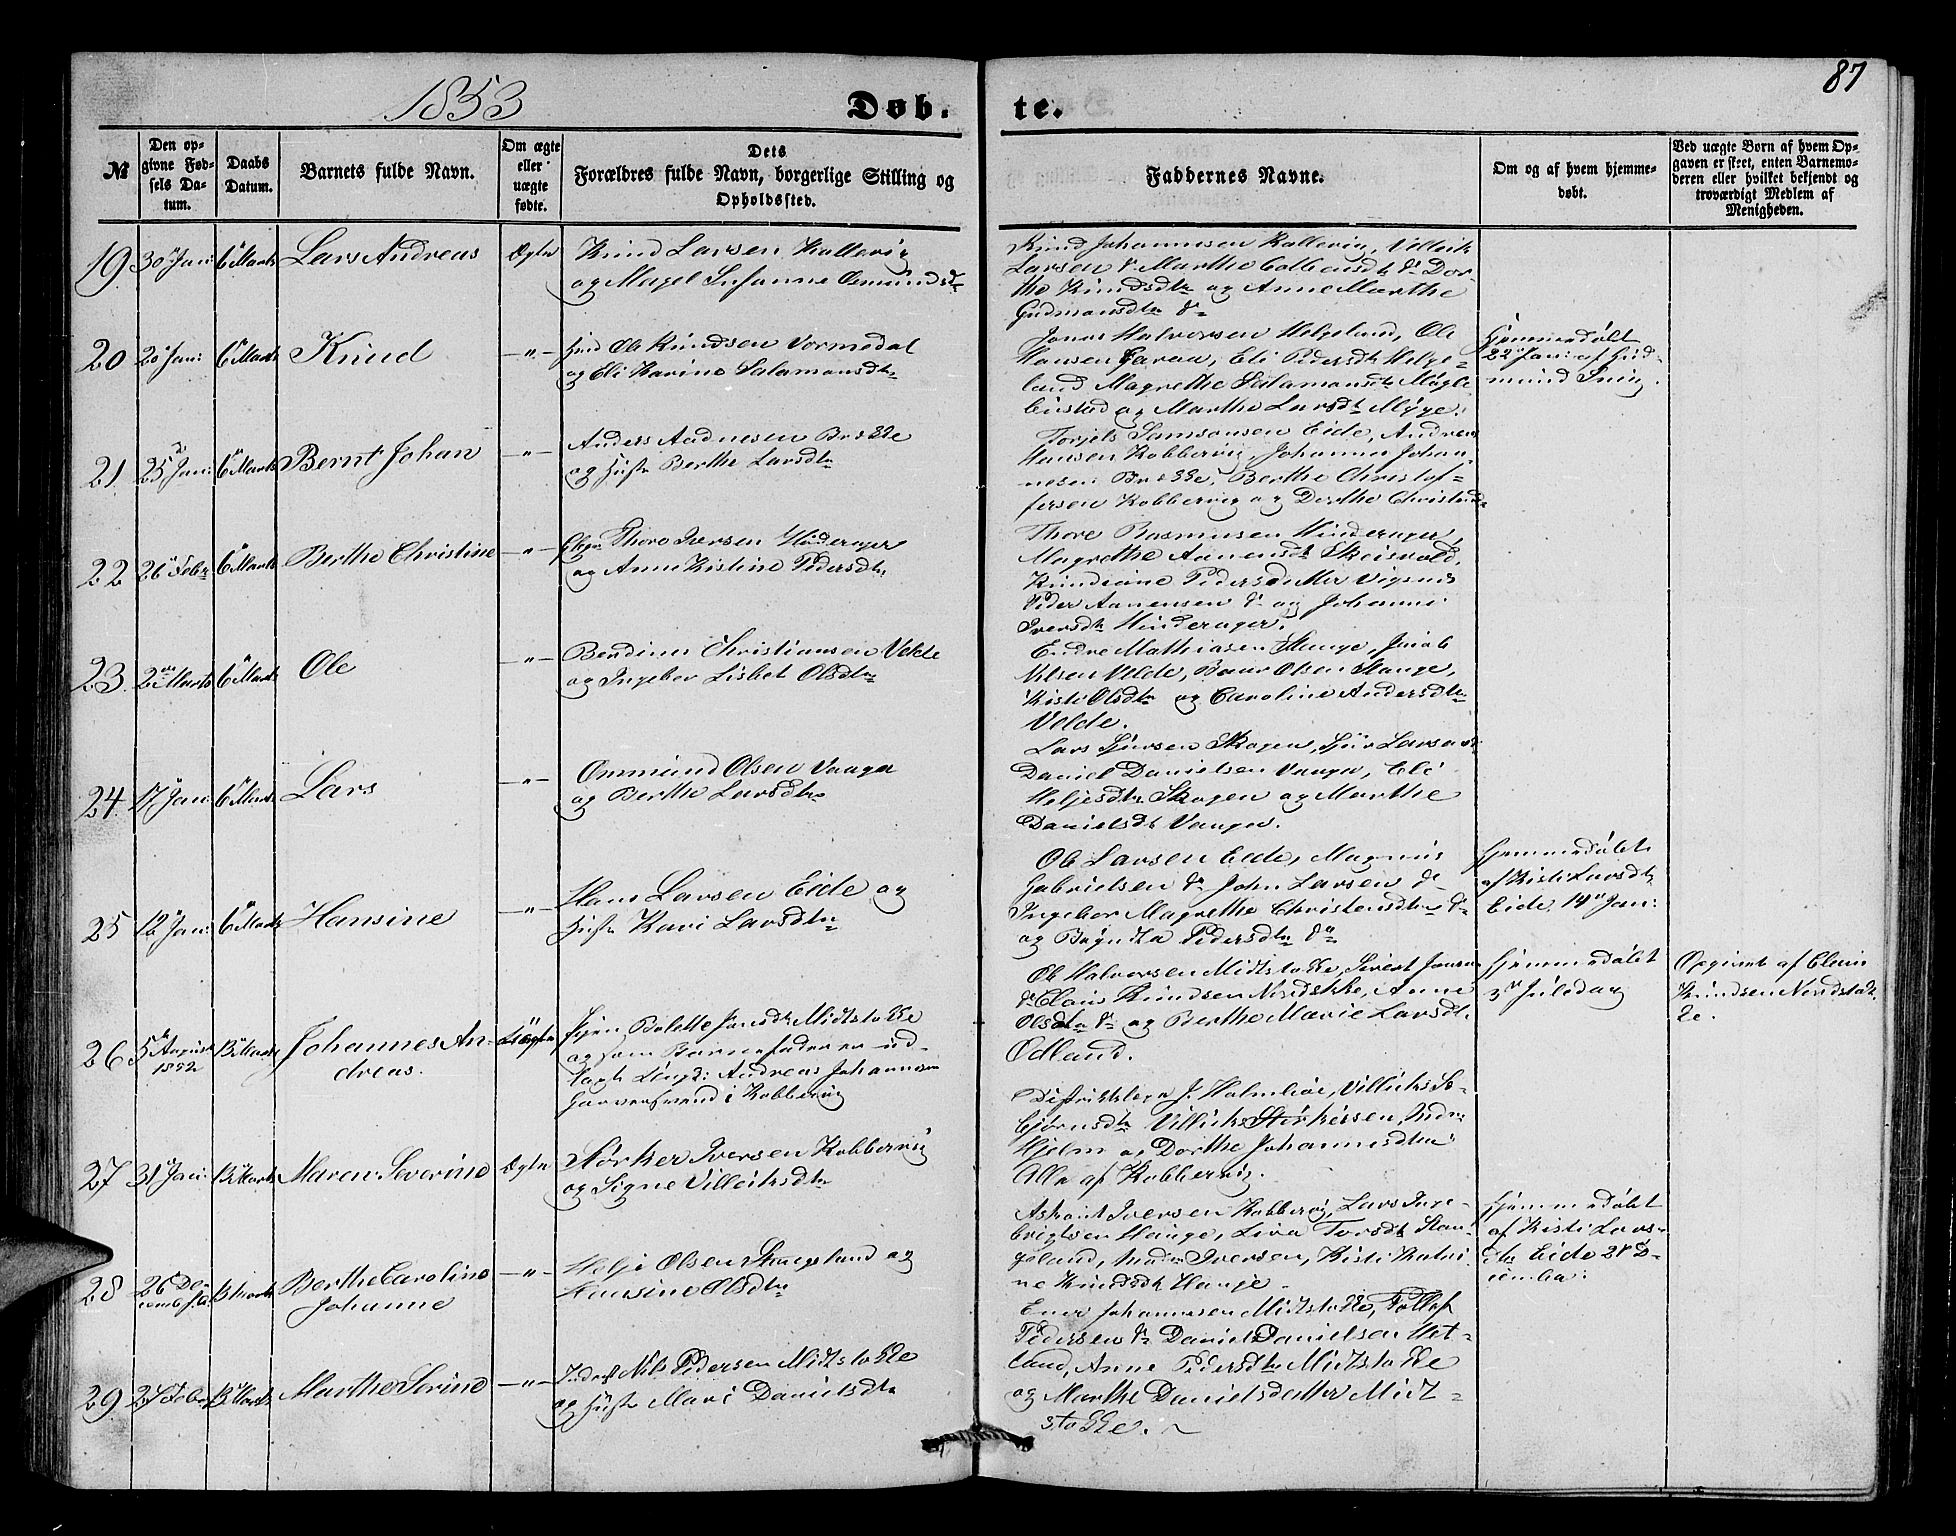 1853 Døb. te. 87
№
Den opgivne Fødsels Datum.
Daabs Datum.
Barnets fulde Navn.
Om ægte eller uægte fødte.
Dets Forældres fulde Navn, borgerlige Stilling og Opholdssted.
Faddernes Navne.
Om og af hvem hjemmedøbt.
Ved uægte Børn af hvem Opgaven er skeet, enten Barnemoderen eller hvilket bekjendt og troværdigt Medlem af Menigheden.
19 30 Jan: 6 Marts Lars Andreas Ægte
Knud Larsen
og Susanne Osmundsd
Knud Johannesen
Larsen & Marthe
Knudsdtr og Anne Marthe
Gudmansdtr
20 20 Jan: 6 Marts Knud —"—
Ole Knudsen Vormedal
og Eli Karine Salamonsdtr
Jonas Halvorsen Helgeland, Ole
Hansen Eli Pedersdtr Helge-
land Magrethe Salamonsdtr Mögle
og Marthe Larsdtr
Hjemmedøbt
22 Jan: af Gud-
mund
21 25 Jan: 6 Marts Bernt Johan —"—
Anders Aadnesen Brekke
og Hustr Berthe Larsdtr
Torjels Samsonsen Eide, Andreas
Hansen Kobbervig, Johannes Johan-
nesen Brekke, Berthe Christof-
fersen Kobbervig og Dorthe
22 26 Febr 6 Marts Berthe Christine —"—
Thore Iversen Hinderager
og Anne Kistine Pedersdtr
Thore Rasmussen Hinderager,
Magrethe Aanensdtr
Pedersdatter Vigsnes
Peder Aanensen og Johanne
Iversdtr Hinderager.
23 2 Marts 6 Marts Ole —"—
Berdines Christiansen Velde
og Ingebor Lisbet Olsdtr
Endre Mathiasen Stange, Jacob
Nilsen Velde, Olsen Stange,
Kisti Olsdtr og Caroline Andersdtr
Velde.
24 17 Jan: 6 Marts Lars —"—
Ommund Olsen Vaage
og Berthe Larsdtr
Lars Sjursen Skogen, Sjur Larsen
Daniel Danielsen Vaage, Eli
Heljesdtr Skogen og Marthe
Danielsdt Vaage.
25 12 Jan: 6 Marts Hansine —"—
Hans Larsen Eide og
Hustr Kari Larsdtr
Ole Larsen Eide, Magnus
Gabrielsen do John Larsen do
Ingebor Magrethe Christensdtr do
og Pedersdtr do
Hjemmedøbt
af Kisti Larsdtr
Eide 14 Jan:
26 5 August 1852 13 Marts Johannes An-
dreas.
Uægte
Bolette Jansdtr Midtstokke
og som Barnefader er ud-
lagt Andreas Johannesen
Garversvend i Kobbervig
Ole Halvorsen Midtstokke, Sivert Jansen
do Claus Knudsen Nordstokke, Anne
Olsdtr do og Berthe Marie Larsdt.
Odland.
Hjemmedøbt
3 Juledag
Opgivet af Claus
Knudsen Nordstok-
ke.
27 31 Jan: 13 Marts Maren Severine Ægte
Størker Iversen Kobbervig
og Signe Villeiksdtr
J. Holmboe,
Størkersen,
Hjelm og Dorthe Johannesdtr
Alle af Kobbervig.
28 26 De-
cemb f.A. 13 Marts Berthe Caroline
Johanne
—"—
Helje Olsen Stangeland og
Hansine Olsdtr
Iversen Kobbervig, Lars Inge-
brigtsen Hauge, Liva Torsdtr Stan-
geland, Iversen, Kisti Katri-
ne Knudsdt Hauge.
Hjemmedøbt
af Kisti Lars-
dtr Eide 28 De-
cember
29 24 Febr 13 Marts Marthe Serine —"—
Nils Pedersen Midtstokke
og Hustr Mari Danielsdtr
Johannesen Midtstokke, Tollef
Pedersen do Daniel Danielsen Het-
land, Anne Pedersdtr Midtstokke
og Marthe Danielsdatter Midt-
stokke.